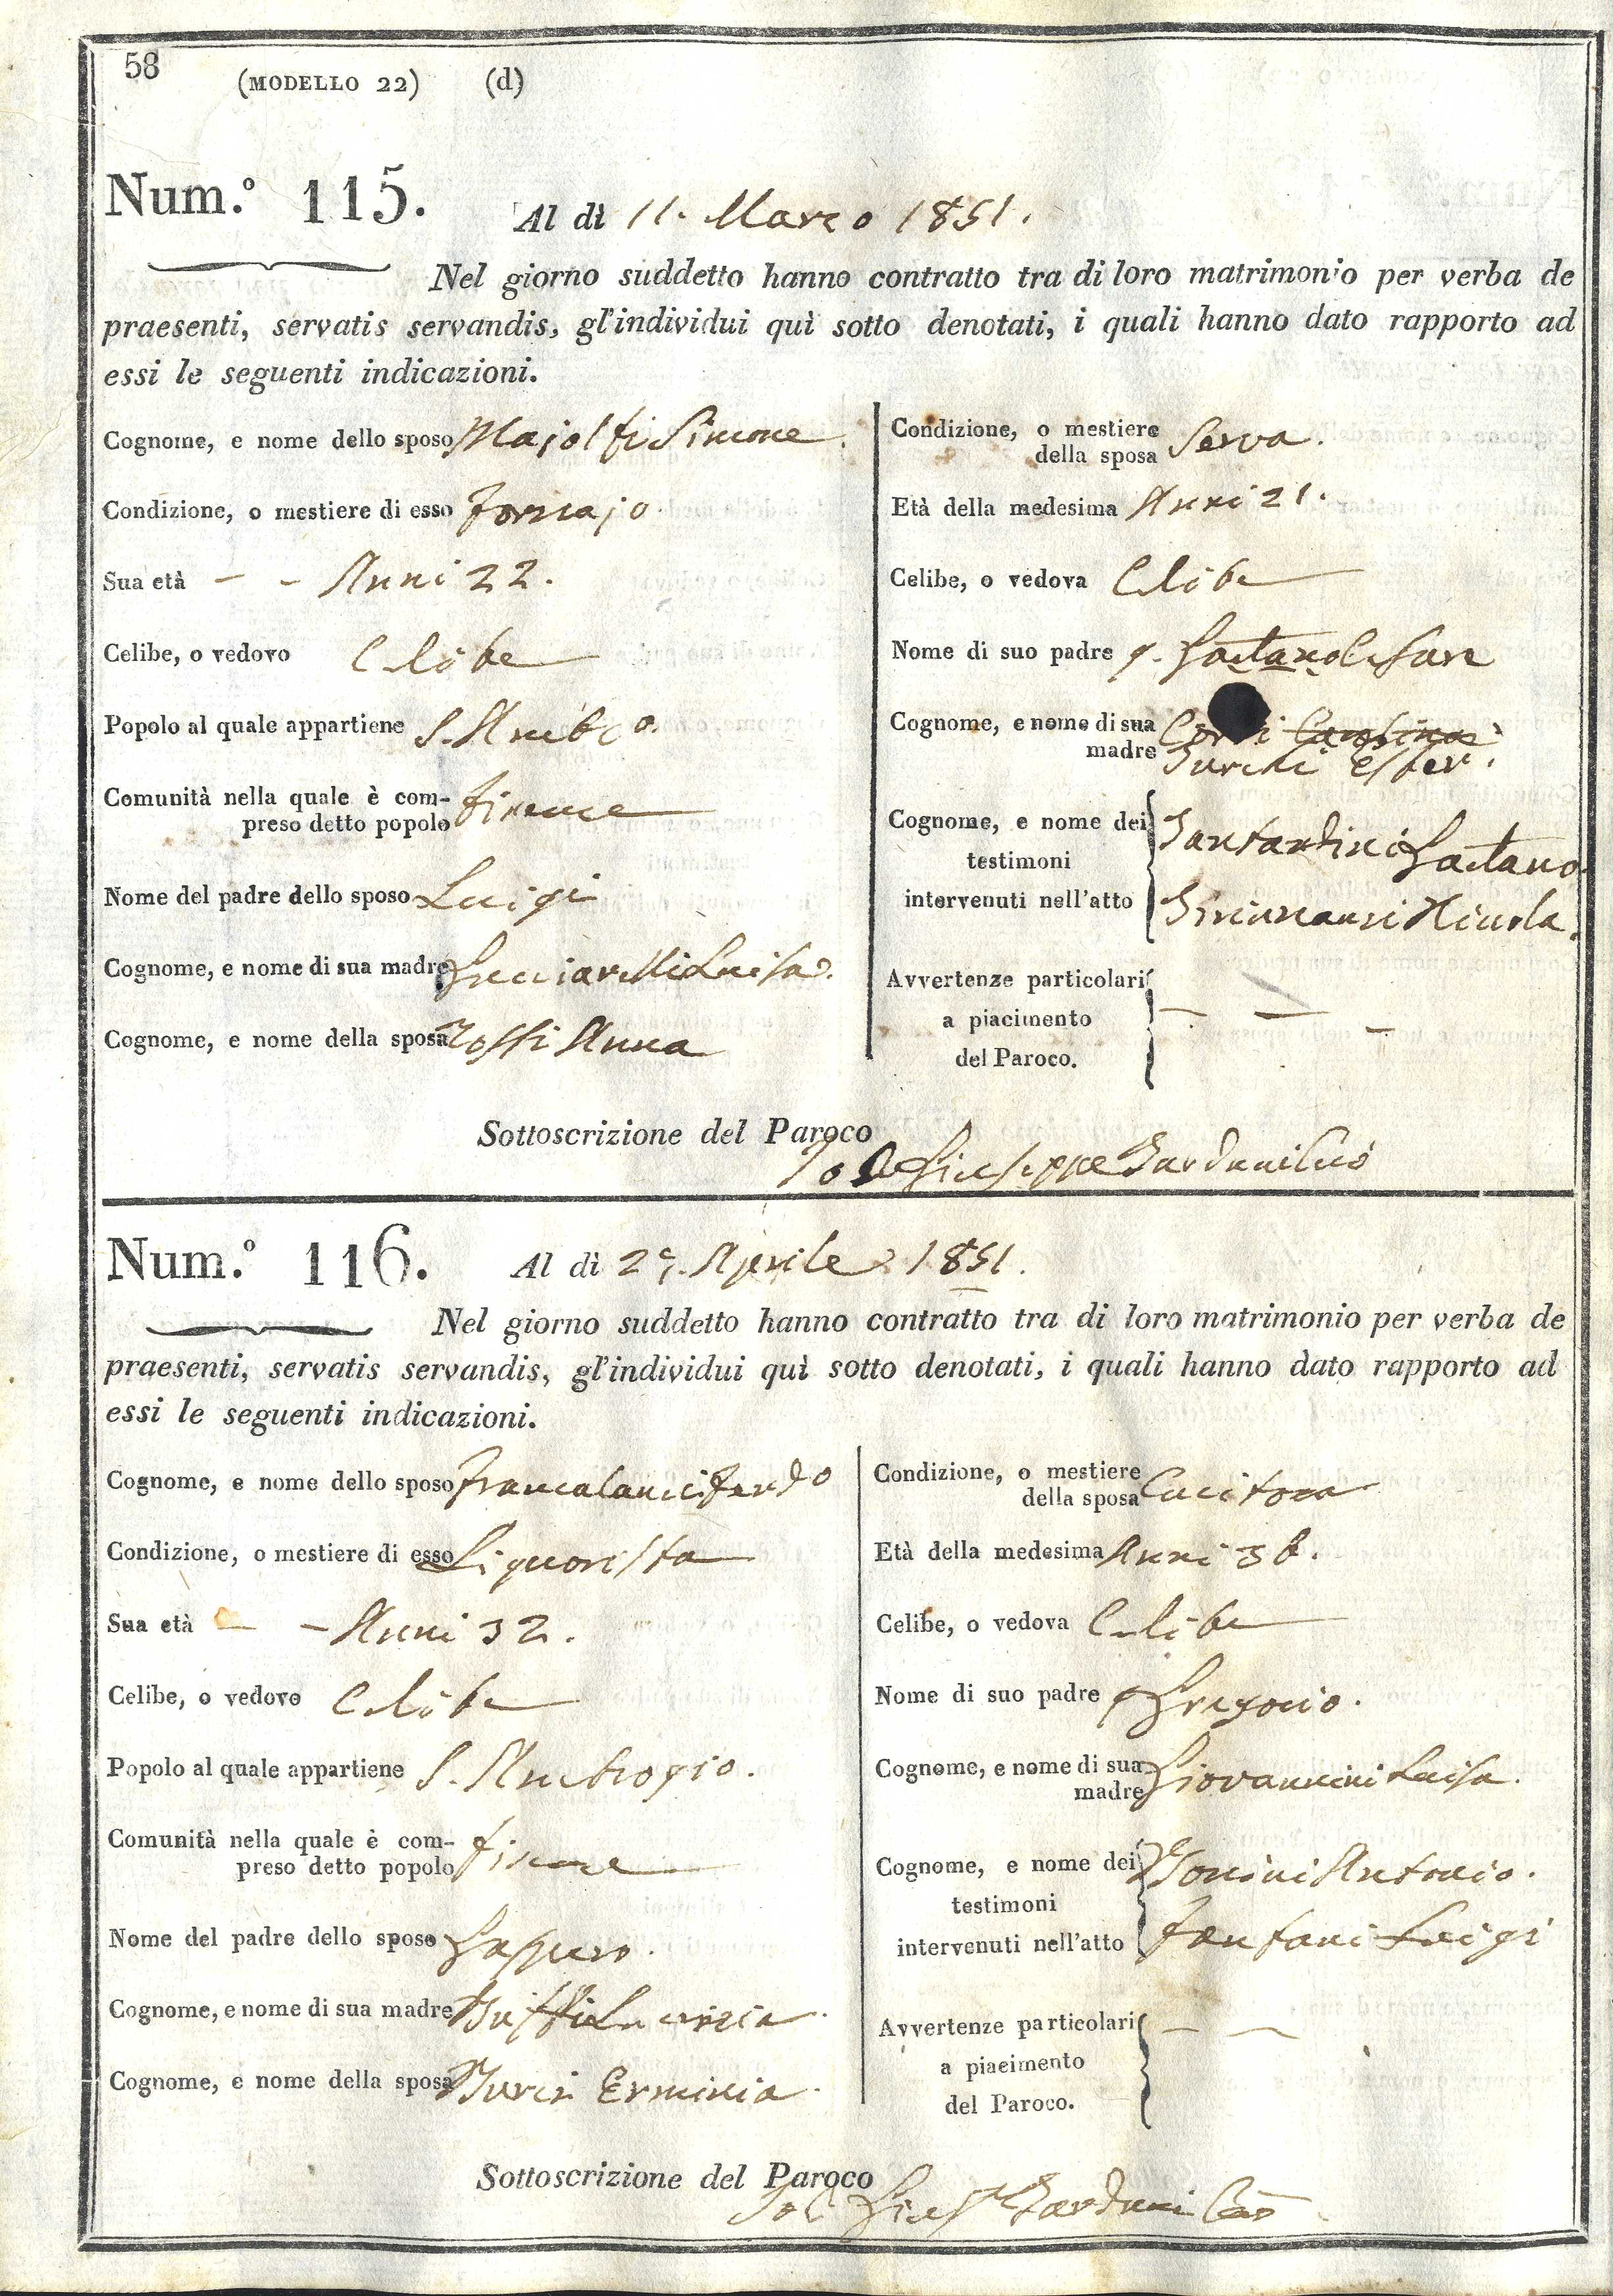 58
(MODELLO 22) (d)
Num.º 115.
Al dì 11. Marzo 1851.
Nel giorno suddetto hanno contratto tra di loro matrimonio per verba de
praesenti, servatis servandis, gl'individui quì sotto denotati, i quali hanno dato rapporto ad
essi le seguenti indicazioni.
Cognome, e nome dello sposo Majolfi Simone.
Condizione, o mestiere di esso Fornajo.
Sua età - - Anni 22.
Celibe, o vedovo Celibe
Popolo al quale appartiene S. Ambº.
Comunità nella quale è com-
preso detto popolo Firenze
Nome del padre dello sposo Luigi
Cognome, e nome di sua madre Luisa.
Cognome, e nome della sposa Rossi Anna
Condizione, o mestiere
della sposa Serva.
Età della medesima Anni 21.
Celibe, o vedova Celibe
Nome di suo padre q. Gaetano Cesare
Cognome, e nome di sua
madre Ester.
Cognome, e nome dei
testimoni
intervenuti nell'atto
Gaetano.
Nicola.
Avvertenze particolari
a piacimento
del Paroco.
- - -
Sottoscrizione del Paroco
Io Giuseppe Barduni
Num.º 116.
Al dì Aprile 1851.
Nel giorno suddetto hanno contratto tra di loro matrimonio per verba de
praesenti, servatis servandis, gl'individui quì sotto denotati, i quali hanno dato rapporto ad
essi le seguenti indicazioni.
Cognome, e nome dello sposo Francalanci Ferdº
Condizione, o mestiere di esso Liquorista
Sua età - - Anni 32.
Celibe, o vedovo Celibe
Popolo al quale appartiene S. Ambrogio.
Comunità nella quale è com-
preso detto popolo Firenze
Nome del padre dello sposo Gaspero.
Cognome, e nome di sua madre Buffi Lucrezia.
Cognome, e nome della sposa Burci Erminia.
Condizione, o mestiere
della sposa Cucitora
Età della medesima Anni 38.
Celibe, o vedova Celibe
Nome di suo padre q Gregorio.
Cognome, e nome di sua
madre Giovannini Luisa.
Cognome, e nome dei
testimoni
intervenuti nell'atto
Bonini Antonio.
Fanfani Luigi
Avvertenze particolari
a piacimento
del Paroco.
- -
Sottoscrizione del Paroco
Barduni